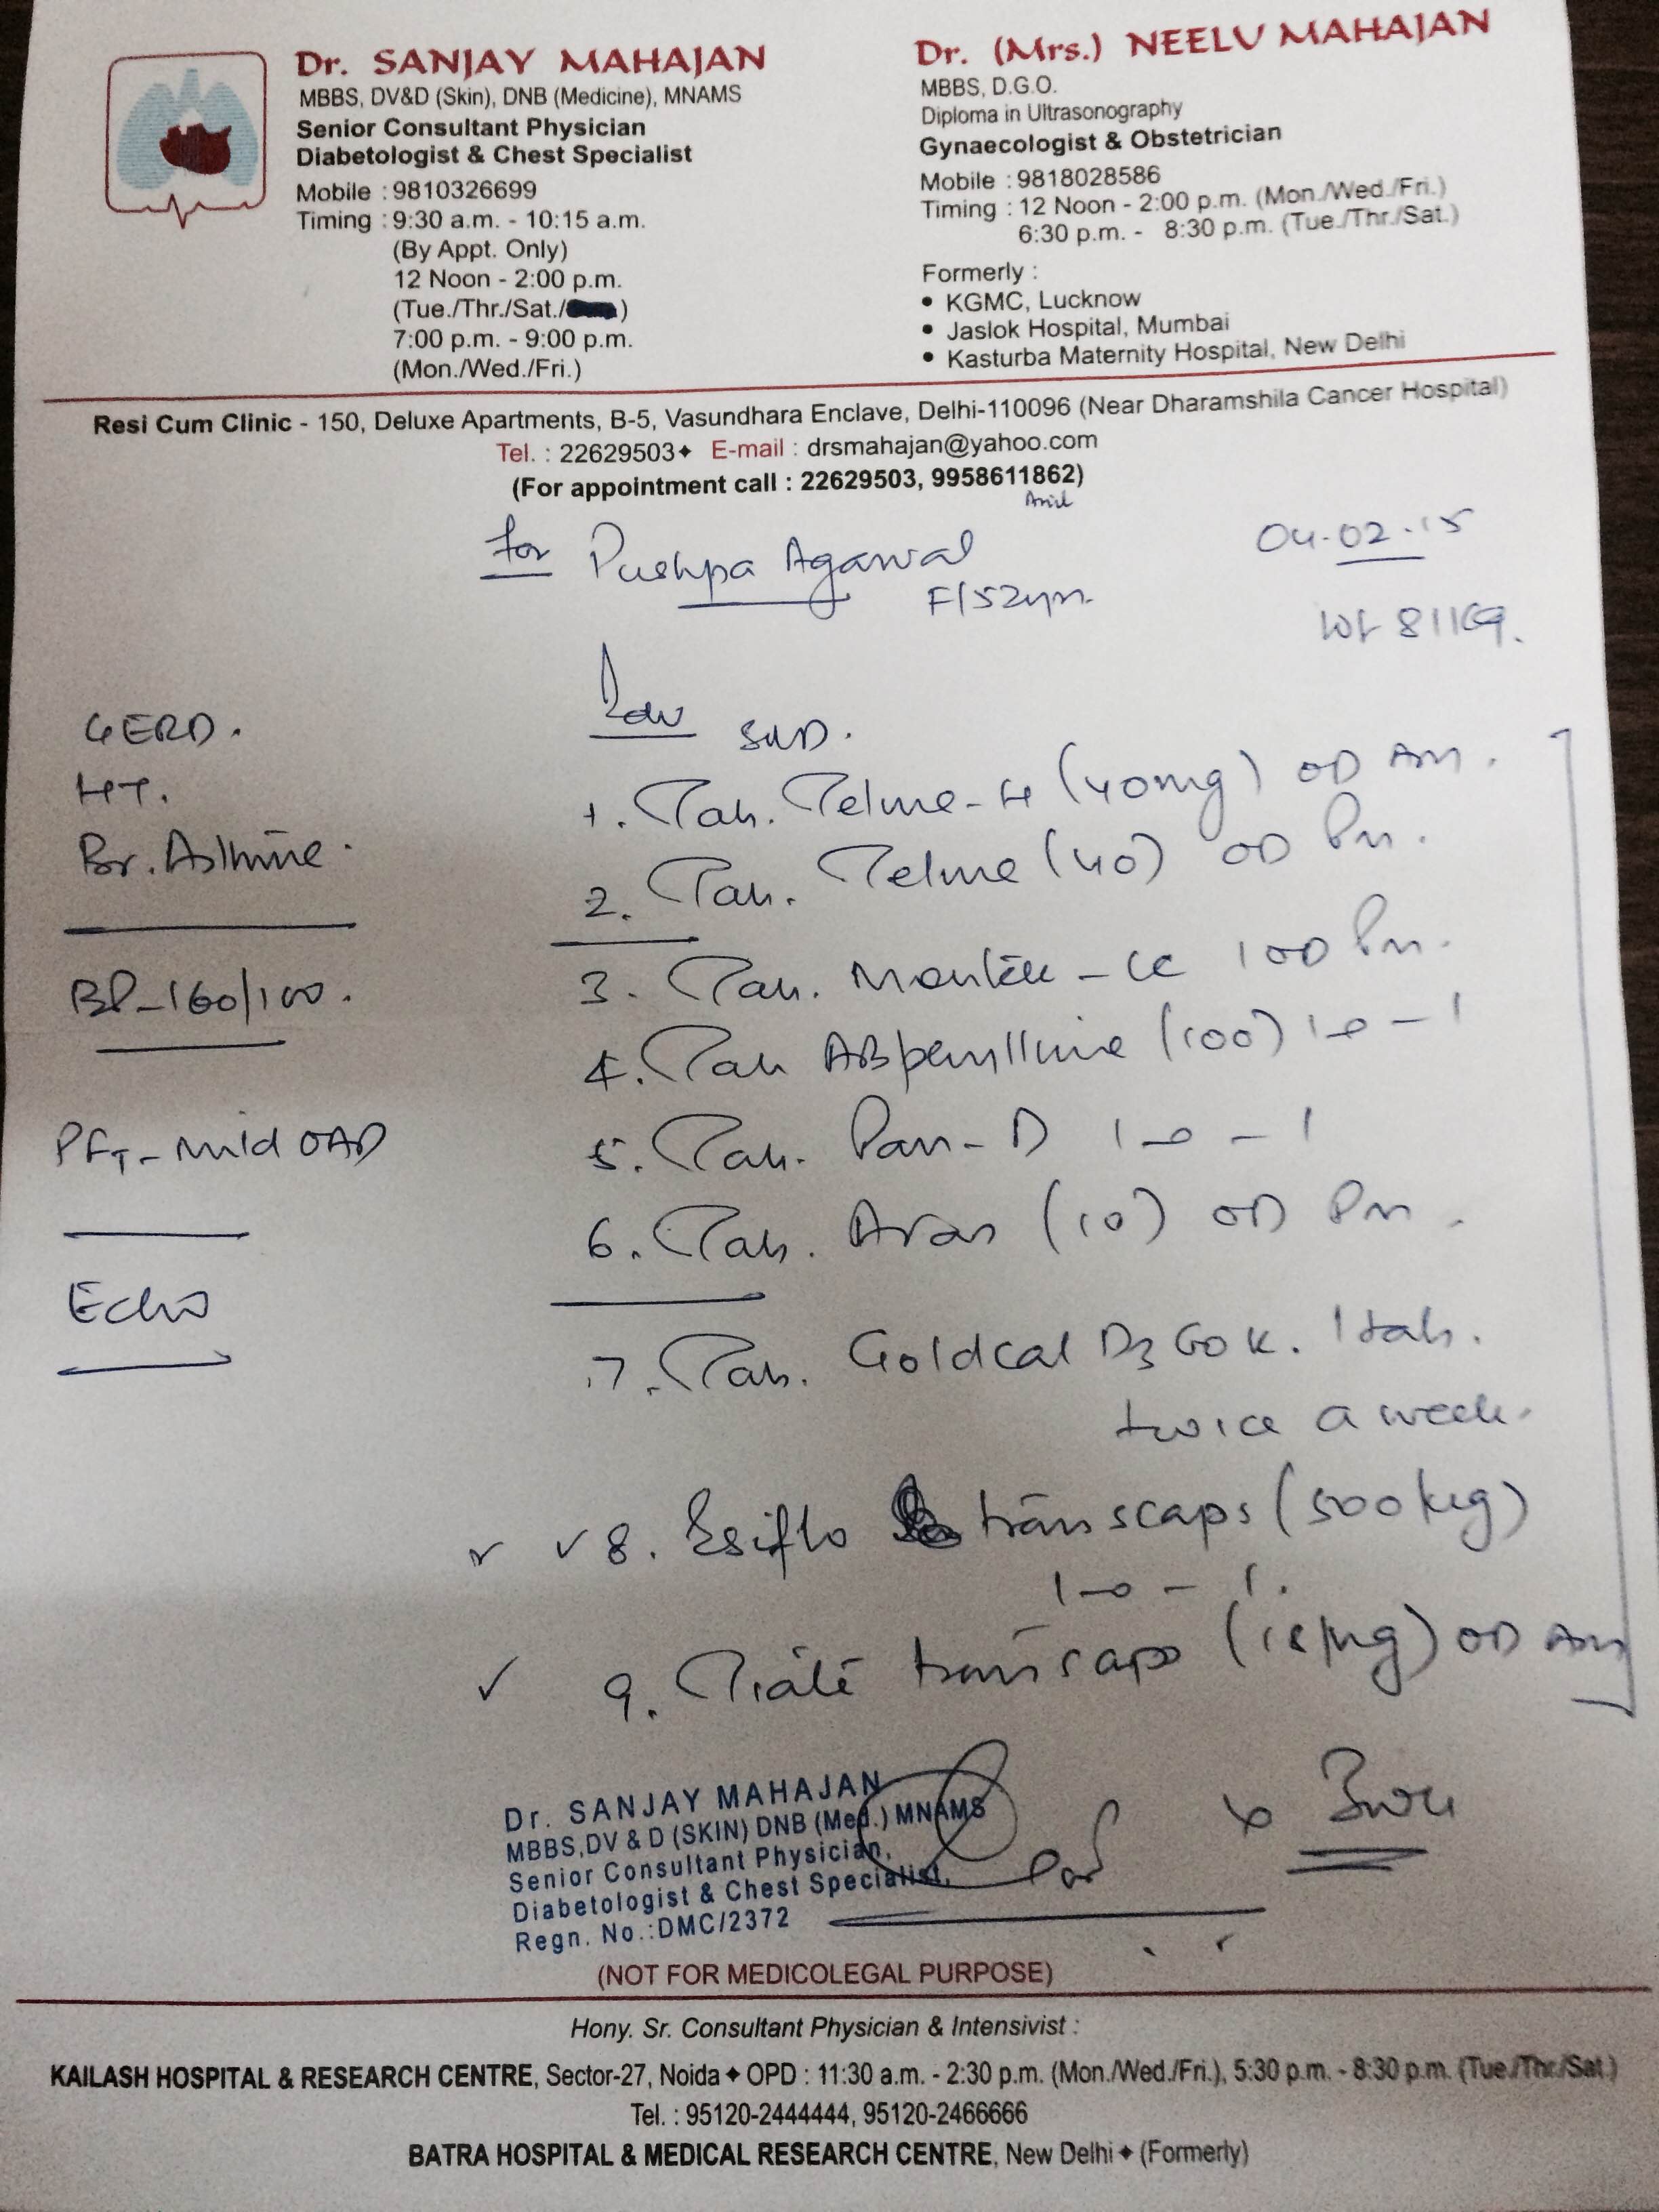 Dr. SANJAY MAHAJAN
MBBS, DV&D (Skin), DNB (Medicine), MNAMS
Senior Consultant Physician
Diabetologist & Chest Specialist
Mobile : 9810326699
Timing : 9:30 a.m. - 10:15 a.m.
(By Appt. Only)
12 Noon - 2:00 p.m.
(Tue./Thr./Sat./)
7:00 p.m. - 9:00 p.m.
(Mon./Wed./Fri.)
Dr. (Mrs.) NEELU MAHAJAN
MBBS, D.G.O.
Diploma in Ultrasonography
Gynaecologist & Obstetrician
Mobile : 9818028586
Timing : 12 Noon - 2:00 p.m. (Mon./Wed./Fri.)
6:30 p.m. - 8:30 p.m. (Tue./Thr./Sat.)
Formerly :
• KGMC, Lucknow
• Jaslok Hospital, Mumbai
• Kasturba Maternity Hospital, New Delhi
Resi Cum Clinic - 150, Deluxe Apartments, B-5, Vasundhara Enclave, Delhi-110096 (Near Dharamshila Cancer Hospital)
Tel. : 22629503✦ E-mail : drsmahajan@yahoo.com
(For appointment call : 22629503, 9958611862)
for Pushpa Agarwal
F/52yrs.
04-02-15
Wt 81kg.
GERD.
HT.
Br. Asthma.
BP-160/100.
PFT- mild OAD
Echo
Adv
1. Tab. Telma-H (40mg) OD AM.
2. Tab. Telma (40) OD PM.
3. Tab. Montek-LC 1 OD PM.
4. Tab ABphylline (100) 1-0-1
5. Tab. Pan-D 1-0-1
6. Tab. (10) OD PM.
7. Tab. Goldcal D3 60K. 1 tab.
twice a week.
✓ ✓ 8. Esiflo transcaps (500)
1-0-1.
✓ 9. Tiate transcaps (18µg) OD AM
Dr. SANJAY MAHAJAN
MBBS,DV & D (SKIN) DNB (Med.) MNAMS
Senior Consultant Physician,
Diabetologist & Chest Specialist,
Regn. No.:DMC/2372
(NOT FOR MEDICOLEGAL PURPOSE)
Hony. Sr. Consultant Physician & Intensivist :
KAILASH HOSPITAL & RESEARCH CENTRE, Sector-27, Noida ✦ OPD : 11:30 a.m. - 2:30 p.m. (Mon./Wed./Fri.), 5:30 p.m. - 8:30 p.m. (Tue./Thr./Sat.)
Tel. : 95120-2444444, 95120-2466666
BATRA HOSPITAL & MEDICAL RESEARCH CENTRE, New Delhi ✦ (Formerly)